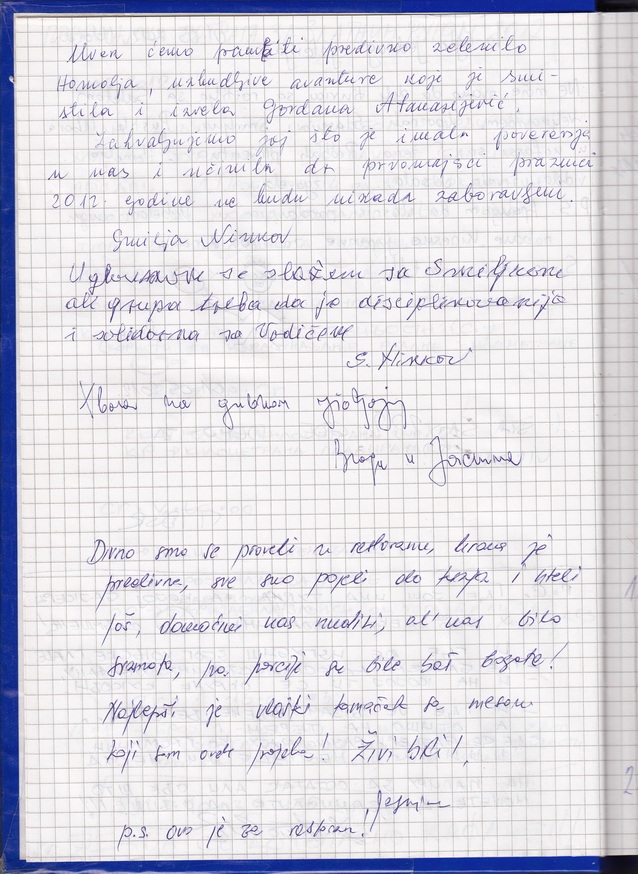 Uvek ćemo pamtiti predivno zelenilo
Homolja, uzbudljive avanture koje je smi-
slila i izvela Gordana Atanasijević.
Zahvaljujemo joj što je imala poverenja
u nas i učinila da prvomajski praznici
2012. godine ne budu nikada zaboravljeni.
Smilja Ninkov
Uglavnom se slažem sa Smiljkom
ali grupa treba da je disciplinovanija
i solidarna sa Vodičem
S. Ninkov
Хвала на
и
Divno smo se proveli u restoranu, hrana je
predivna, sve smo pojeli do kraja i hteli
još, domaćini nas nudili, al' nas bilo
sramota, pa porcije su bile baš bogate!
Najlepši je vlaški kamačak sa mesom
koji sam ovde probala! Živi bili!
Jasmina
p.s. ovo je za restoran!